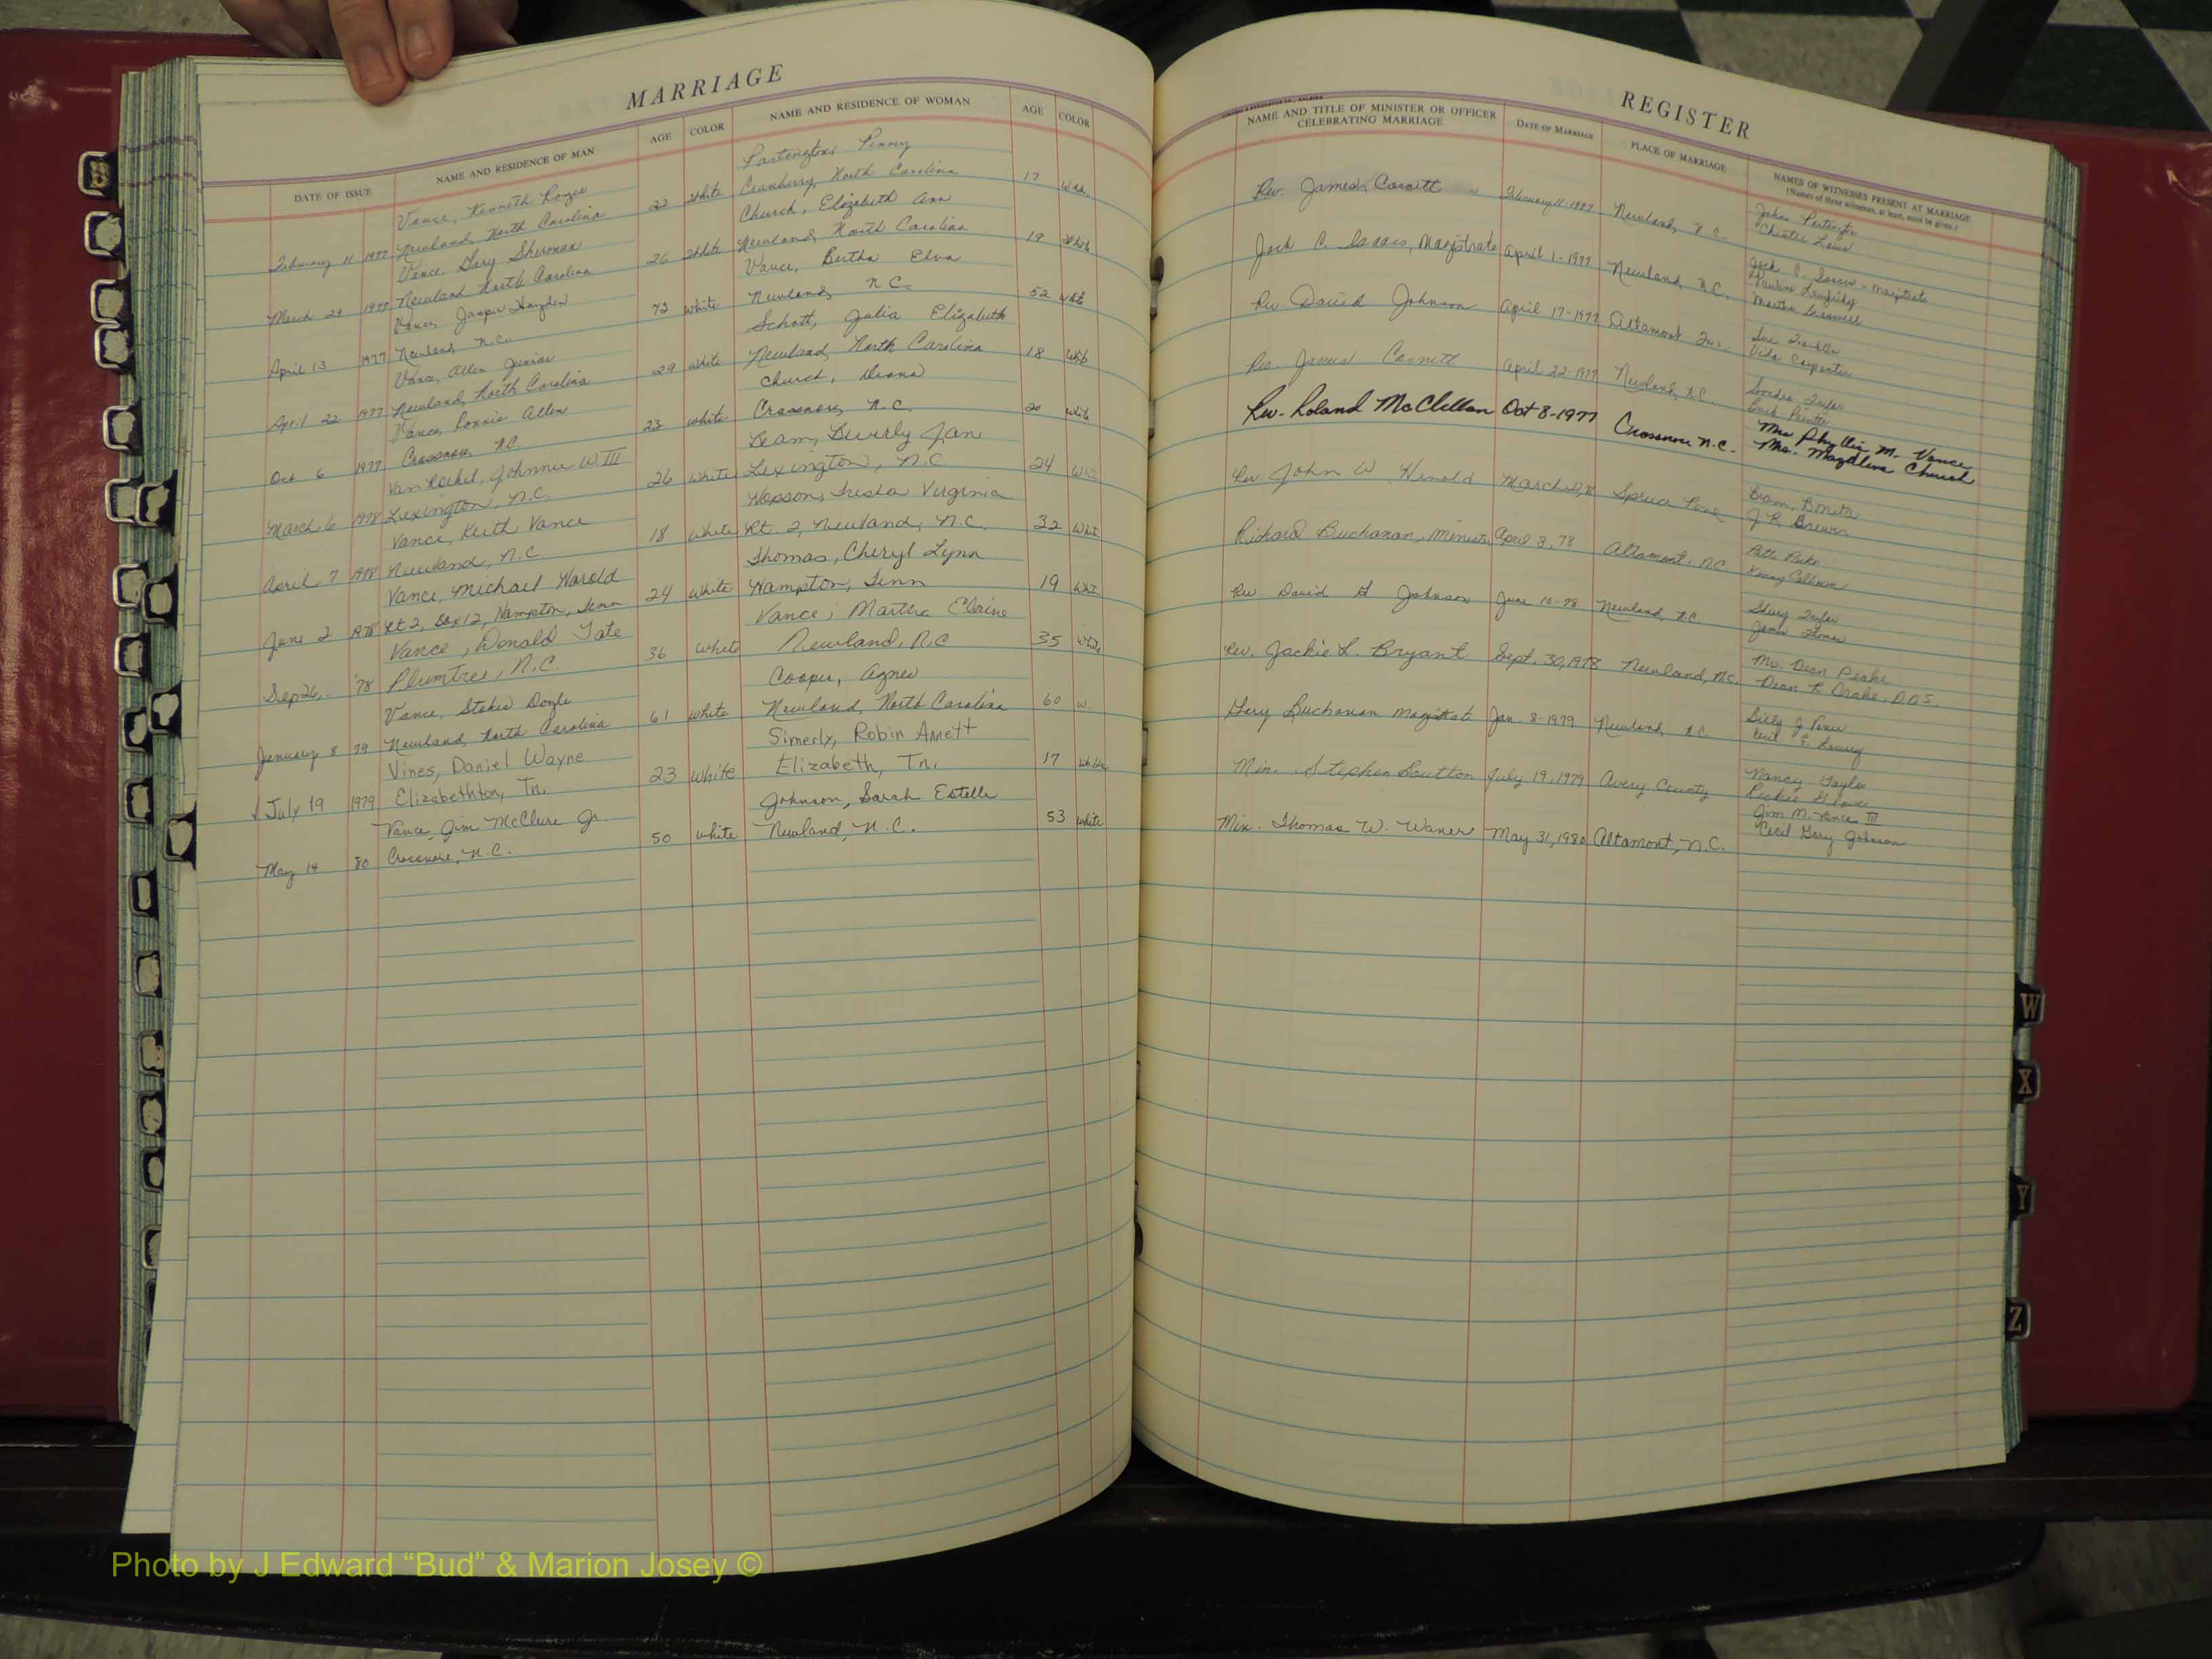 MARRIAGE
DATE OF ISSUE NAME AND RESIDENCE OF MAN AGE COLOR NAME AND RESIDENCE OF WOMAN AGE COLOR
Vance, Kenneth Roger Partington, Penny
February 11 1977 Newland, North Carolina 22 White Cranberry, North Carolina 17
Vance Gary Sherman Church, Elizabeth Ann
March 29 1977 Newland North Carolina 26 White Newland, North Carolina 19 White
Vance, Jasper Hayden Vance, Bertha Elva
April 13 1977 Newland, N.C. 72 White Newland, N.C. 52 White
Vance, Allen Junior Schott, Julia Elizabeth
April 22 1977 Newland, North Carolina 29 White Newland, North Carolina 18 White
Vance, Ronnie Allen Church, Diana
Oct 6 1977 Crossnore, NC 23 White Crossnore, N.C. 20 White
Van Hoekel, Johnnie W III Beam, Beverly Jan
March 6 1978 Lexington, N.C. 26 White Lexington, N.C. 24
Vance, Keith Vance Hopson, Tresla Virginia
April 7 1978 Newland, N.C. 18 White Rt. 2, Newland, N.C. 32
Vance, Michael Harold Thomas, Cheryl Lynn
June 2 1978 Rt 2, Box 12, Hampton, Tenn 24 White Hampton, Tenn 19
Vance, Donald Tate Vance, Martha Elaine
Sep 26, '78 Plumtree, N.C. 36 White Newland, N.C 35 White
Vance, Stokes Doyle Cooper, Agnes
January 8 79 Newland, North Carolina 61 White Newland, North Carolina 60 W.
Vines, Daniel Wayne Simerly, Robin Annett
√ July 19 1979 Elizabethton, Tn. 23 White Elizabeth, Tn. 17 White
Vance, Jim McClure Jr. Johnson, Sarah Estelle
May 14 80 Crossnore, N.C. 50 White Newland, N.C. 53 white
REGISTER
NAME AND TITLE OF MINISTER OR OFFICER CELEBRATING MARRIAGE DATE OF MARRIAGE PLACE OF MARRIAGE NAMES OF WITNESSES PRESENT AT MARRIAGE
(Names of three witnesses, at least, must be given.)
Rev. James Cornett February 11-1977 Newland, N.C. John Partington
Chester Laws
Jack C. Isaacs, Magistrate April 1-1977 Newland, N.C. Jack C. Isaacs - Magistrate
Pauline
Martha
Rev. David Johnson April 17-1977 Altamont Sue Franklin
Vida Carpenter
Rev. James Cornett April 22-1977 Newland, N.C. Taylor
Rev. Roland McClellan Oct 8-1977 Crossnore N.C. Mrs Phyllis M. Vance
Mrs. Magdline Church
Rev. John W March Spruce Pine Beam, Bonita
J R
Richard Buchanan, Minister April 8, 78 Altamont, NC
Kenny Calhoun
Rev. David H Johnson June 10-78 Newland, NC Taylor
James Thomas
Rev. Jackie L. Bryant Sept. 30, 1978 Newland, NC. Mrs. Dean Drake
Dean R Drake, D.D.S.
Gary Buchanan Magistrate Jan. 8-1979 Newland, N.C. Billy J Vance
Cecil E. Lowery
Min. Stephen July 19, 1979 Avery County Nancy Taylor
Min. Thomas W. Waner May 31, 1980 Altamont, N.C. Jim M. Vance III
Cecil Gary Johnson
W
X
Y
Z
Photo by J Edward “Bud” & Marion Josey ©